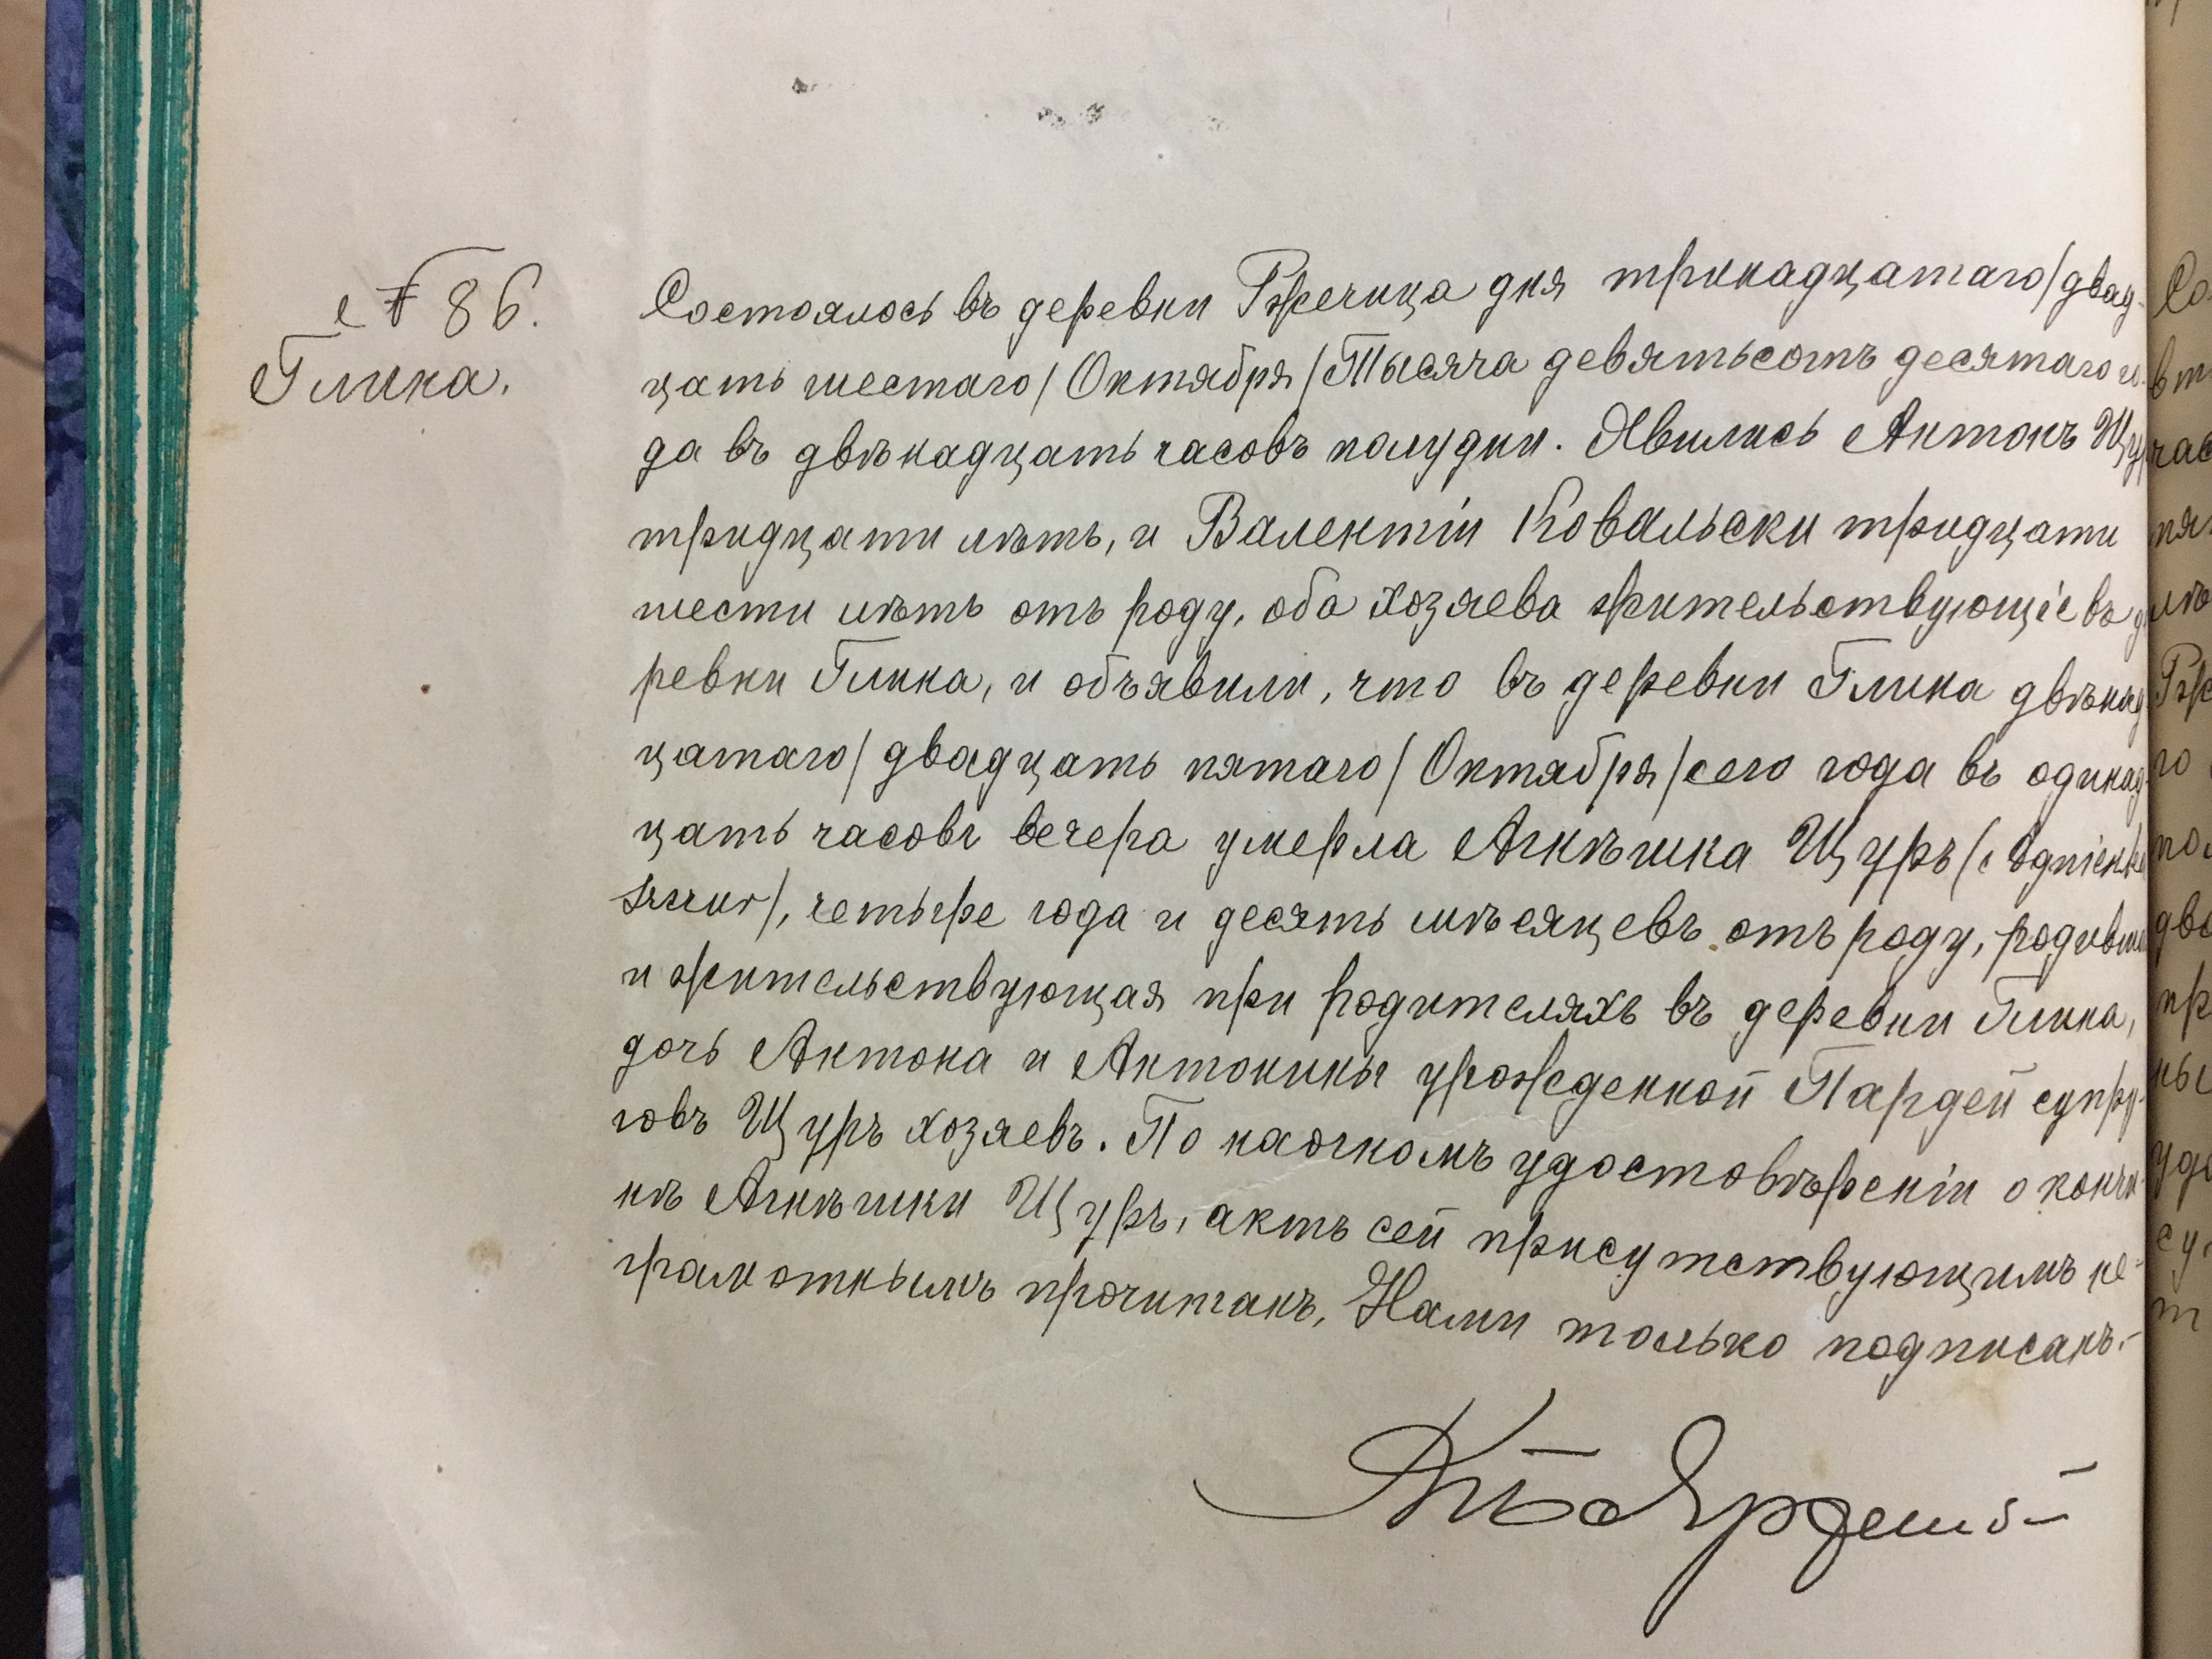 № 86.
Глина.
Состоялось въ деревни Ржечица дня тринадцатаго/двад-
цать шестаго/Октября/Тысяча девятьсотъ десятаго го-
да въ двѣнадцать часовъ полудни. Явились Антонъ Щур
тридцати лѣтъ, и Валентіи Ковальски тридцати
шести лѣтъ отъ роду, оба хозяева жительствующіе въ д
ревни Глина, и объявили, что въ деревни Глина двѣнад
цатаго/двадцать пятаго/Октября/сего года въ одинад
цать часовъ вечера умерла Агнѣшка Щуръ (Agnieszk
Szczur), четыре года и десять мѣсяцевъ отъ роду, родивша
и жительствующая при родителяхъ въ деревни Глина,
дочь Антона и Антонины урожденной Пардей супру-
говъ Щуръ хозяевъ. По наочномъ удостовѣреніи о кончи-
нѣ Агнѣшки Щуръ, актъ сей присутствующимъ не-
грамотнымъ прочитанъ, Нами только подписанъ.-